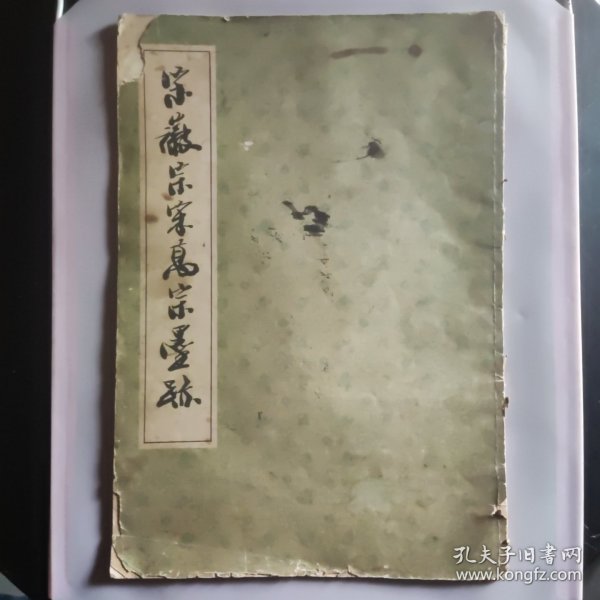 宋徽宗宋高宗墨跡
孔夫子旧書网
www.kongfz.com